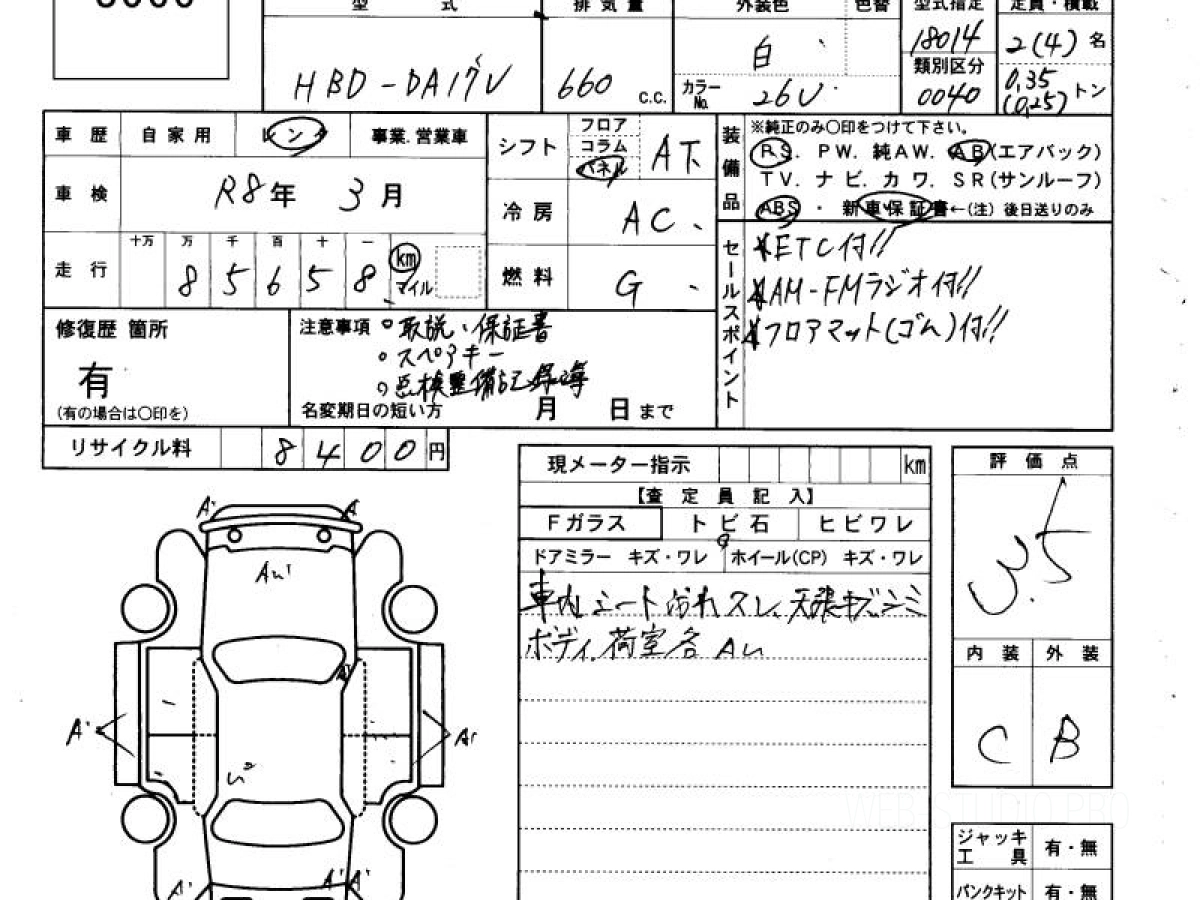 型 式
排気量
外装色
色替
型式指定
定員・積載
HBD-DA17V
660 c.c.
白
カラーNo. 26U
18014
類別区分
0040
2(4)名
0.35
(0.25)トン
車歴 自家用 レンタ 事業.営業車
車検 R8年 3月
走行 十万 万 千 百 十 一
8 5 6 5 8 km マイル
シフト フロア コラム パネル AT
冷房 AC
燃料 G
装備品
※純正のみ〇印をつけて下さい。
RS. PW. 純AW. AB(エアバック)
TV. ナビ. カワ. SR(サンルーフ)
ABS ・ 新車保証書←(注) 後日送りのみ
セールスポイント
ETC付!!
AM-FMラジオ付!!
フロアマット(ゴム)付!!
修復歴 箇所
有
(有の場合は〇印を)
注意事項 ◦取説、保証書
◦スペアキー
◦点検整備記録簿
名変期日の短い方 月 日まで
リサイクル料 8400円
現メーター指示 km
【査定員記入】
Fガラス トビ石 ヒビワレ
ドアミラー キズ・ワレ ホイール(CP) キズ・ワレ
車内シート汚れスレ、天張キズシミ
ボディ、荷室各 Aい
評価点
3.5
内装 外装
C B
ジャッキ工具 有・無
パンクキット 有・無
A'
A
Aい
A'
A'
A'
WEB STUDIO PRO